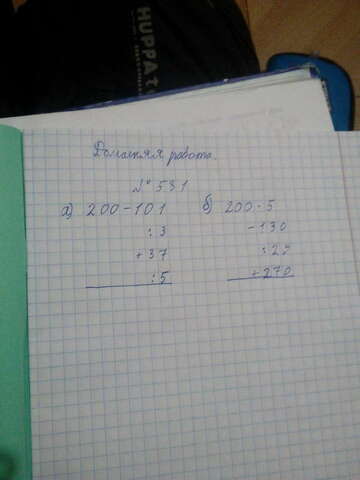 HUPPA
Домашняя работа.
№ 531
а) 200-101 б) 200·5
:3 -130
+37 :29
:5 +270